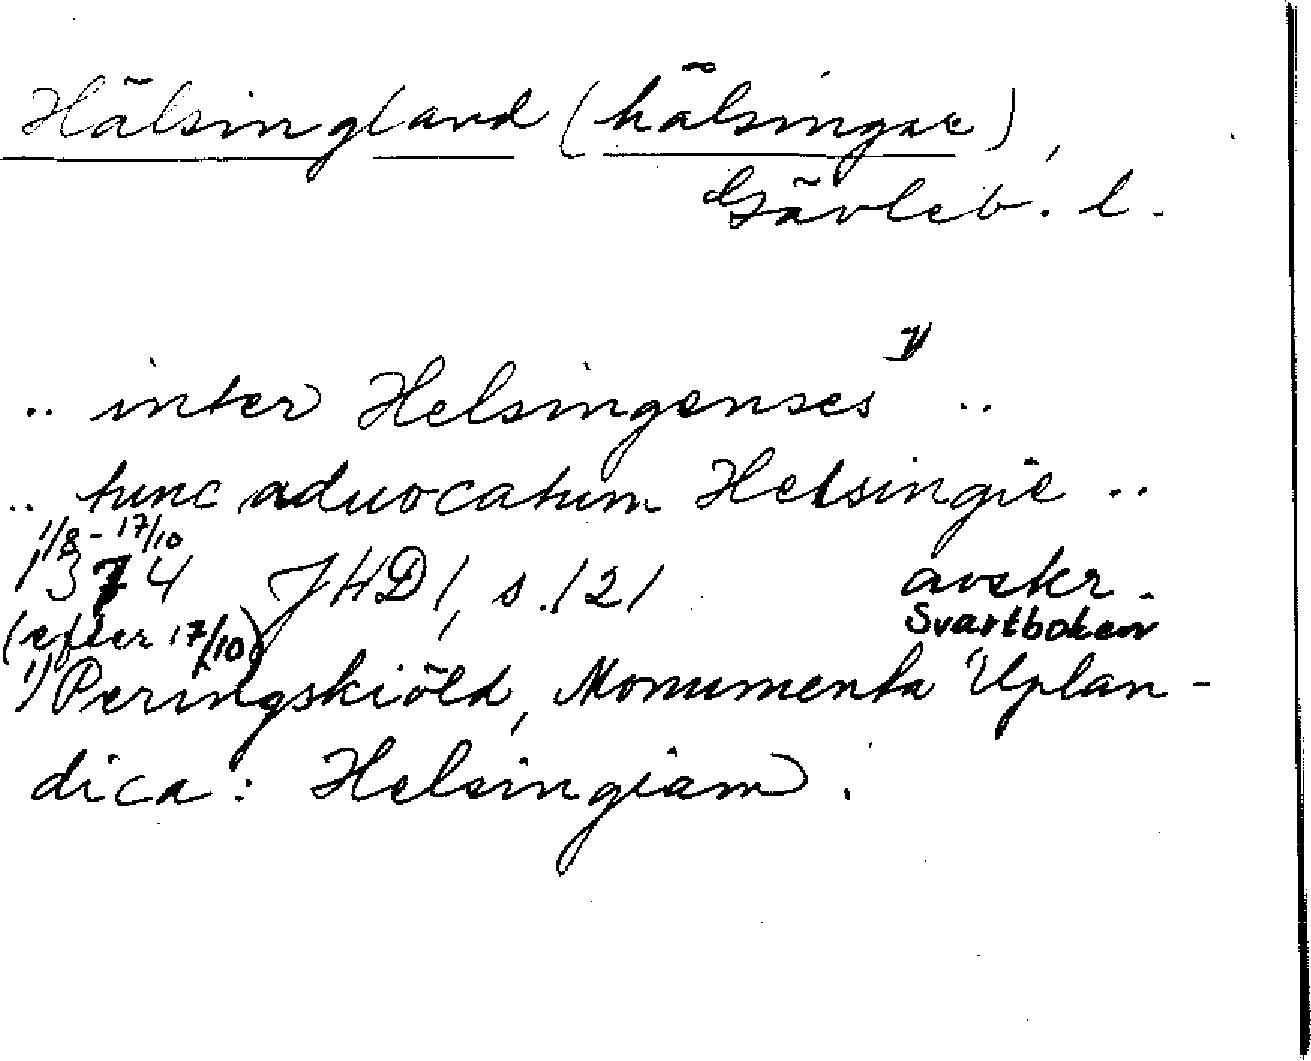 Hälsingland (hälsingar),
Gävleb. l.
.. inter Helsingenses 1) ..
.. tunc aduocatum Helsingie ..
1/8 - 17/10
1374 JHD 1, s. 121 avskr.
(efter 17/10) Svartboken
1) Peringskiöld, Monumenta Uplan-
dica: Helsingiam.